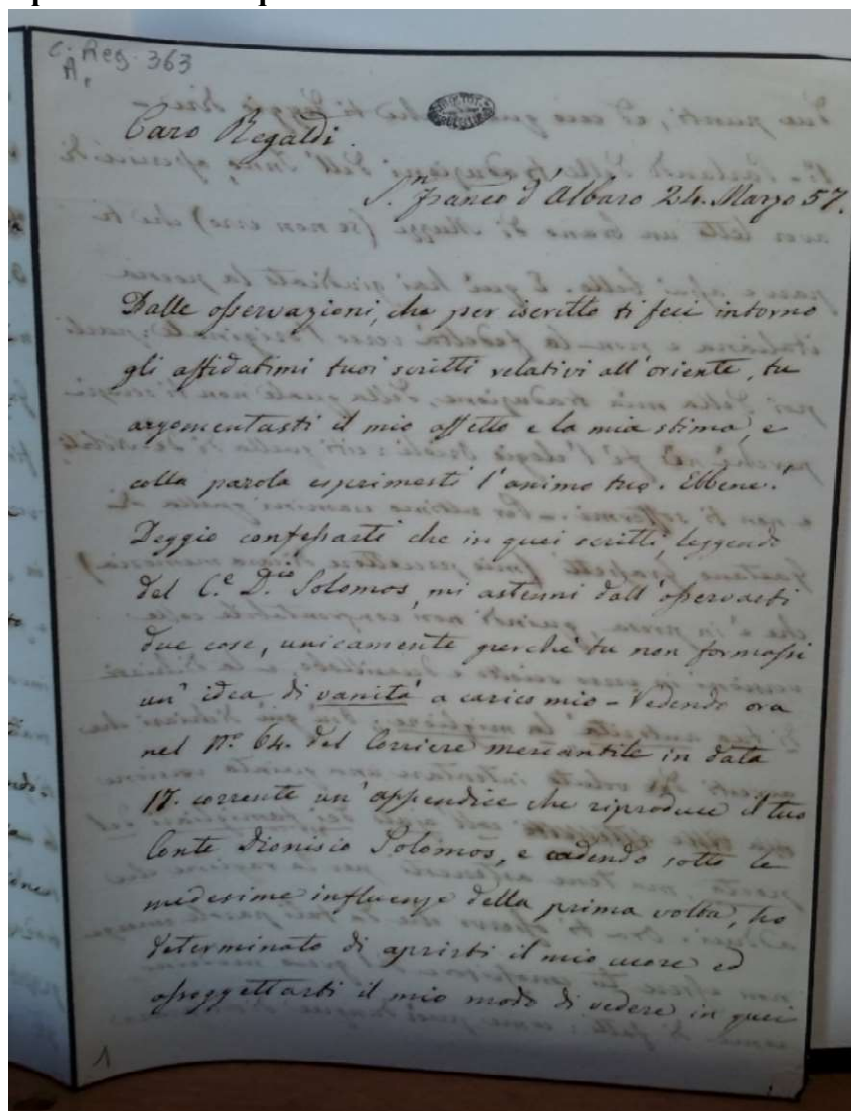 C. Reg. 363
A.
Caro Regaldi.
S.n franco d'Albaro 24. Marzo 57.
Dalle osservazioni, che per iscritto ti feci intorno
gli affidatimi tuoi scritti relativi all'oriente, tu
argomentasti il mio affetto e la mia stima, e
colla parola esprimesti l'animo tuo. Ebbene!
Deggio confessarti che in quei scritti, leggendo
del C.e D.co Solomos, mi astenni dall'osservarti
due cose, unicamente perchè tu non formassi
un' idea di vanità a carico mio - Vedendo ora
nel N.o 64. del Corriere mercantile in data
17. corrente un' appendice che riproduce il tuo
Conte Dionisio Solomos, e cadendo sotto le
medesime influenze della prima volta, ho
determinato di aprirti il mio cuore ed
assoggettarti il mio modo di vedere in quei
1